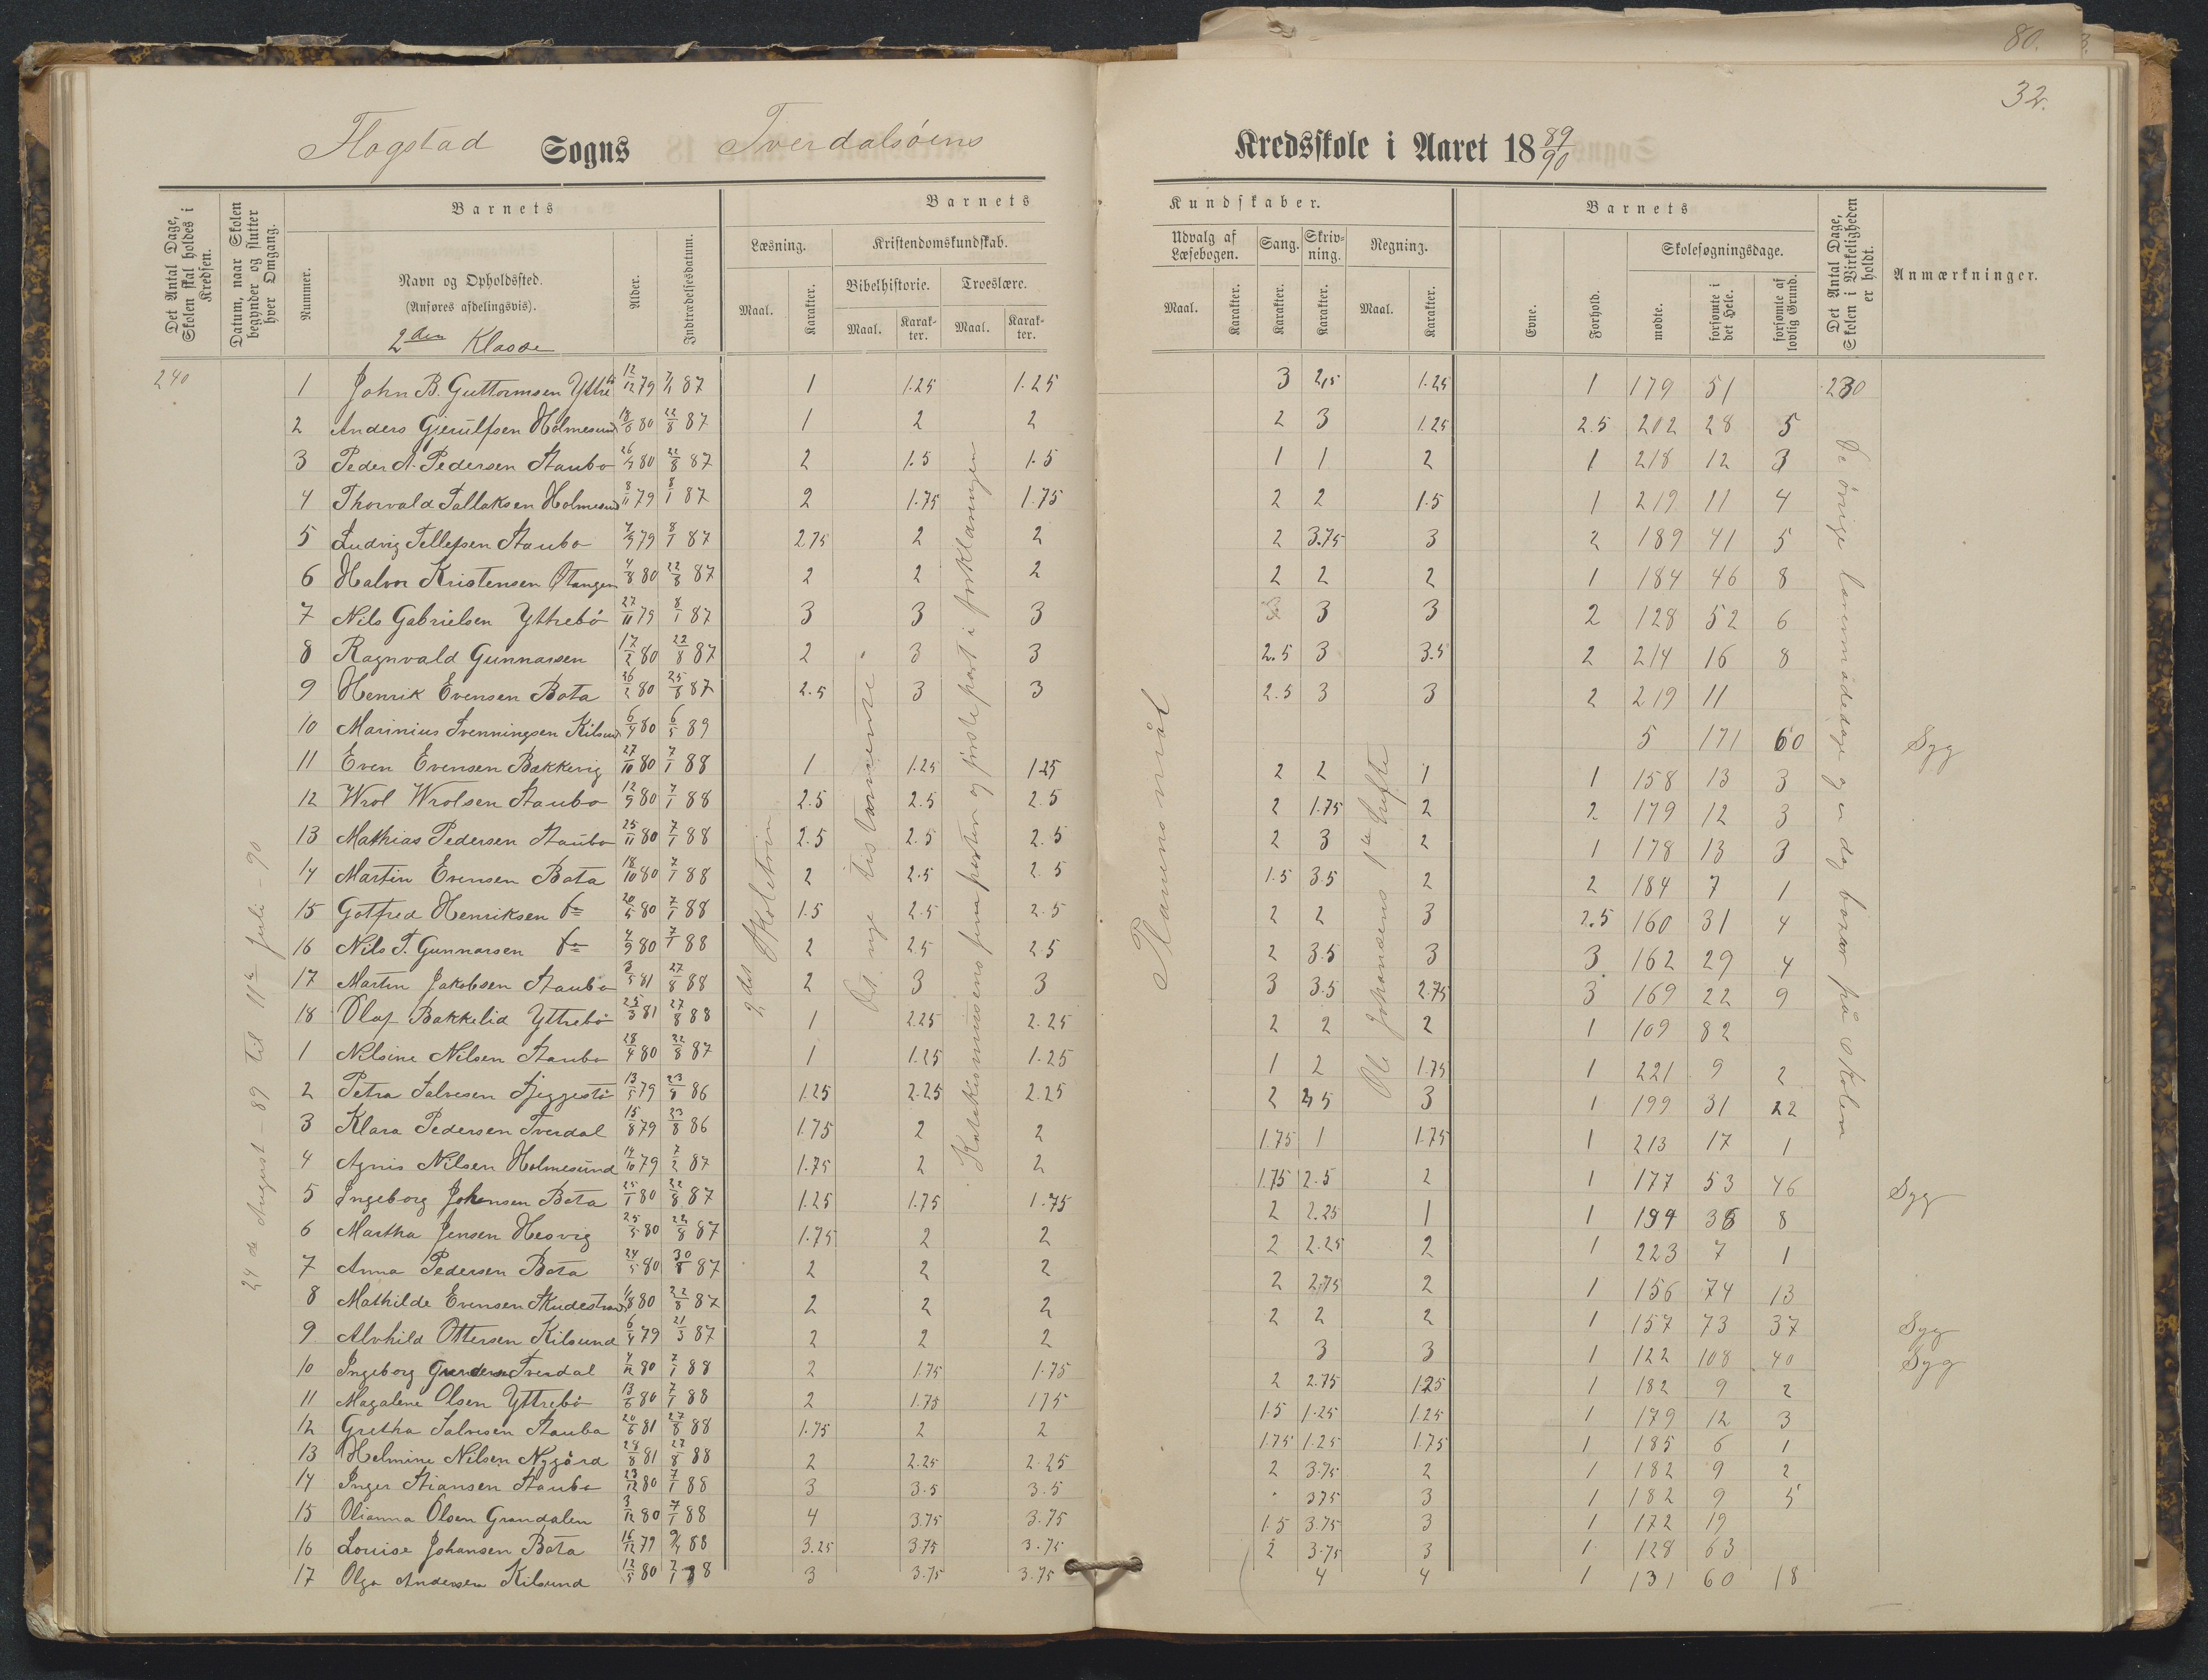 80.
32.
Flogstad Sogns Tverdalsöens Kredsskole i Aaret 18 89/90
Det Antal Dage, Skolen skal holdes i Kredsen.
Datum, naar Skolen begynder og slutter hver Omgang.
Barnets
Nummer.
Navn og Opholdssted.
(Anføres afdelingsvis).
2den Klasse
Alder.
Indtrædelsesdatum.
Barnets Kundskaber.
Læsning.
Maal.
Karakter.
Kristendomskundskab.
Bibelhistorie.
Maal.
Karakter.
Troeslære.
Maal.
Karakter.
Udvalg af Læsebogen.
Maal.
Karakter.
Sang.
Karakter.
Skrivning.
Karakter.
Regning.
Maal.
Karakter.
Barnets
Evne.
Forhold.
Skolesøgningsdage.
mødte.
forsømte i det Hele.
forsømte af lovlig Grund.
Det Antal Dage, Skolen i Virkeligheden er holdt.
Anmærkninger.
240
24de August - 89 til 11te juli - 90
2det Skoletrin
Det nye testamente
Katekismusens fem parter og første part i forklaringen
Jensens
Ole Johansens 1ste hefte
De övrige
på skolen
1 John B. Guttormsen Yttre 12/12 79 7/1 87 1 1.25 1.25 3 2,5 1.25 1 179 51 230
2 Anders Gjerulfsen Holmesund 18/6 80 22/8 87 1 2 2 2 3 1.25 2.5 202 28 5
3 Peder A. Pedersen Staubo 26/4 80 22/8 87 2 1.5 1.5 1 1 2 1 218 12 3
4 Thorvald Tallaksen Holmesund 8/11 79 8/1 87 2 1.75 1.75 2 2 1.5 1 219 11 4
5 Ludvig Tellefsen Staubo 7/9 79 8/1 87 2.75 2 2 2 3.75 3 2 189 41 5
6 Halvor Kristensen Otangen 4/8 80 22/8 87 2 2 2 2 2 2 1 184 46 8
7 Nils Gabrielsen Yttrebö 27/11 79 8/1 87 3 3 3 3 3 2 128 52 6
8 Ragnvald Gunnarsen 17/2 80 22/8 87 2 3 3 2.5 3 3.5 2 214 16 8
9 Henrik Evensen Bota 26/2 80 25/8 87 2.5 3 3 2.5 3 3 2 219 11
10 Marinius Svenningsen Kilsund 6/4 80 6/5 89 5 171 60 Syg
11 Even Evensen Bakkevig 27/10 80 7/1 88 1 1.25 1.25 2 2 1 1 158 13 3
12 Wrol Wrolsen Staubo 12/9 80 7/1 88 2.5 2.5 2.5 2 1.75 2 2 179 12 3
13 Mathias Pedersen Staubo 25/11 80 7/1 88 2.5 2.5 2.5 2 3 2 1 178 13 3
14 Martin Evensen Bota 18/10 80 7/1 88 2 2.5 2.5 1.5 3.5 2 2 184 7 1
15 Gotfred Henriksen do 20/5 80 7/1 88 1.5 2.5 2.5 2 2 3 2.5 160 31 4
16 Nils T. Gunnarsen do 4/9 80 7/1 88 2 2.5 2.5 2 3.5 3 3 162 29 4
17 Martin Jakobsen Staubo 3/5 81 27/8 88 2 3 3 3 3.5 2.75 3 169 22 9
18 Olaf Bakkelid Yttrebö 25/3 81 27/8 88 1 2.25 2.25 2 2 2 1 109 82
1 Nilsine Nilsen Staubo 28/4 80 22/8 87 1 1.25 1.25 1 2 1.75 1 221 9 2
2 Petra Salvesen 13/5 79 23/8 86 1.25 2.25 2.25 2 3 1 199 31 22
3 Klara Pedersen Tverdal 15/8 79 23/8 86 1.75 2 2 1.75 1 1.75 1 213 17 1
4 Agnis Nilsen Holmesund 14/10 79 7/2 87 1.75 2 2 1.75 2.5 2 1 177 53 46 Syg
5 Ingeborg Johansen Bota 25/1 80 22/8 87 1.25 1.75 1.75 2 2.25 1 1 194 36 8
6 Martha Jensen Hesvig 25/5 80 22/8 87 1.75 2 2 2 2.25 2 1 223 7 1
7 Anna Pedersen Bota 24/5 80 30/8 87 2 2 2 2 2.75 2 1 156 74 13
8 Mathilde Evensen Skudestrand 80 22/8 87 2 2 2 2 2 2 1 157 73 37 Syg
9 Alvhild Ottersen Kilsund 6/4 79 21/3 87 2 2 2 3 3 1 122 108 40 Syg
10 Ingeborg Tverdal 4/12 80 7/1 88 2 1.75 1.75 2 2.75 1.25 1 182 9 2
11 Magalene Olsen Yttrebö 13/6 80 7/1 88 2 1.75 1.75 1.5 1.25 1.25 1 179 12 3
12 Gretha Salvesen Staubo 20/6 81 27/8 88 1.75 2 2 1.75 1.25 1.75 1 185 6 1
13 Helmine Nilsen Nygård 28/8 81 27/8 88 2 2.25 2.25 2 3.75 2 1 182 9 2
14 Inger Stiansen Staubo 23/12 80 7/1 88 3 3.5 3.5 3.75 3 1 182 9 5
15 Olianna Olsen Grandalen 3/12 80 7/1 88 4 3.75 3.75 1.5 3.75 3 1 172 19
16 Lovise Johansen Bota 16/12 79 88 3.25 3.75 3.75 2 3.75 3 1 128 63
17 Olga Andersen Kilsund 12/5 80 7/1 88 3 3.75 3.75 4 4 1 131 60 18